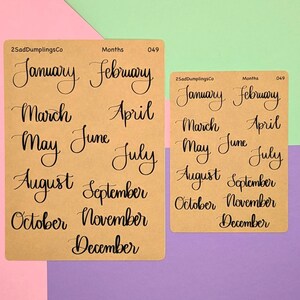 2SadDumplingsCo Months 049
January February
March April
May June
July
August
September
October November
December
2SadDumplingsCo Months 049
January February
March April
May June
July
August
September
October November
December